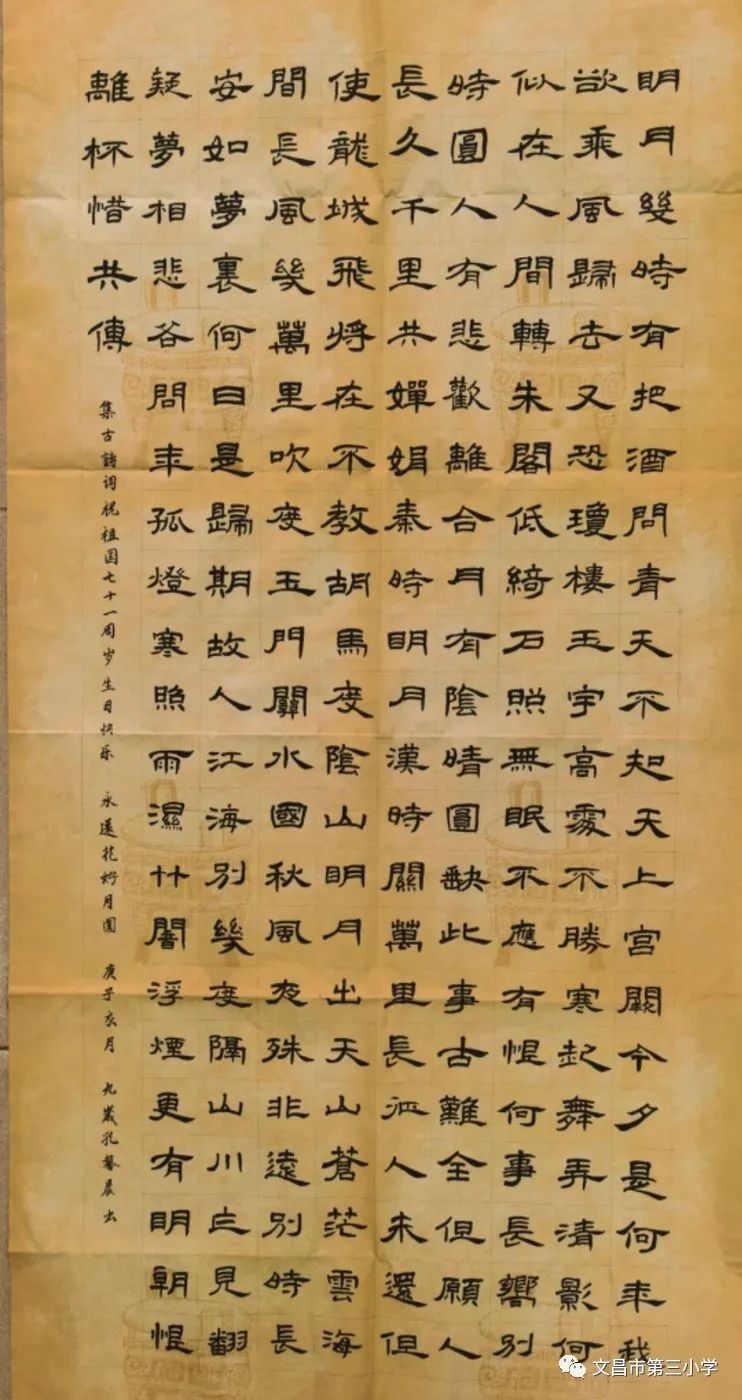 明月幾時有把酒問青天不知天上宮闕今夕是何年我
欲乘風歸去又恐瓊樓玉宇高處不勝寒起舞弄清影何
似在人間轉朱閣低綺石照無眠不應有恨何事長嚮別
時圓人有悲歡離合月有陰晴圓缺此事古難全但願人
長久千里共嬋娟秦時明月漢時關萬里長征人未還但
使龍城飛將在不教胡馬度陰山明月出天山蒼茫雲海
間長風幾萬里吹度玉門關水國秋風夜殊非遠別時長
安如夢裏何日是歸期故人江海別幾度隔山川乍見翻
疑夢相悲各問年孤燈寒照雨濕竹闇浮煙更有明朝恨
離杯惜共傳
集古詩词祝祖国七十一周岁生日快乐 永遠花好月圓 庚子月 九歲孔晨书
文昌市第三小学